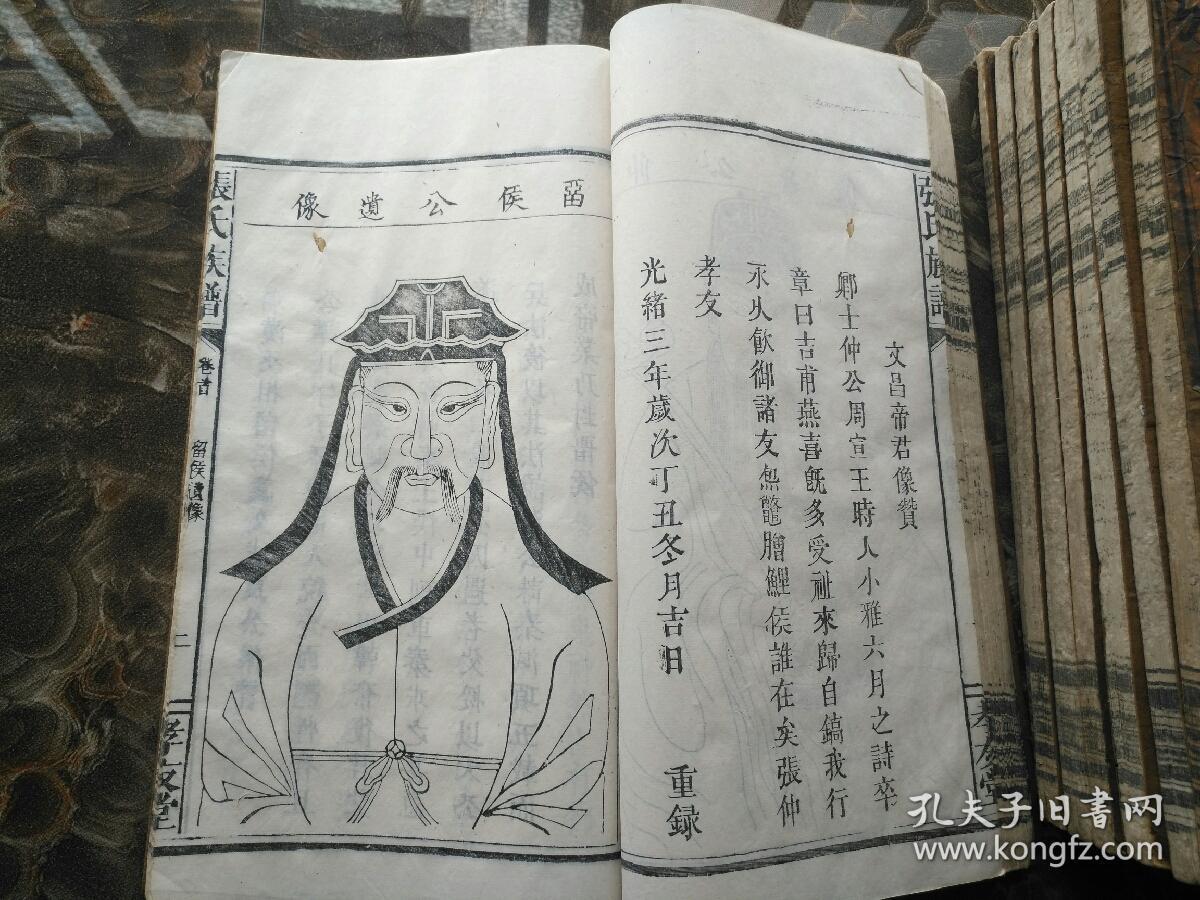 張氏族譜
文昌帝君像贊
卿士仲公周宣王時人小雅六月之詩卒
章曰吉甫燕喜旣多受祉來歸自鎬我行
永久飮御諸友炰鼈膾鯉侯誰在矣張仲
孝友
光緒三年歲次丁丑冬月吉旦 重錄
孝友堂
畱侯公遺像
張氏族譜
卷首
畱侯遺像
二
孝友堂
孔夫子旧书网
www.kongfz.com